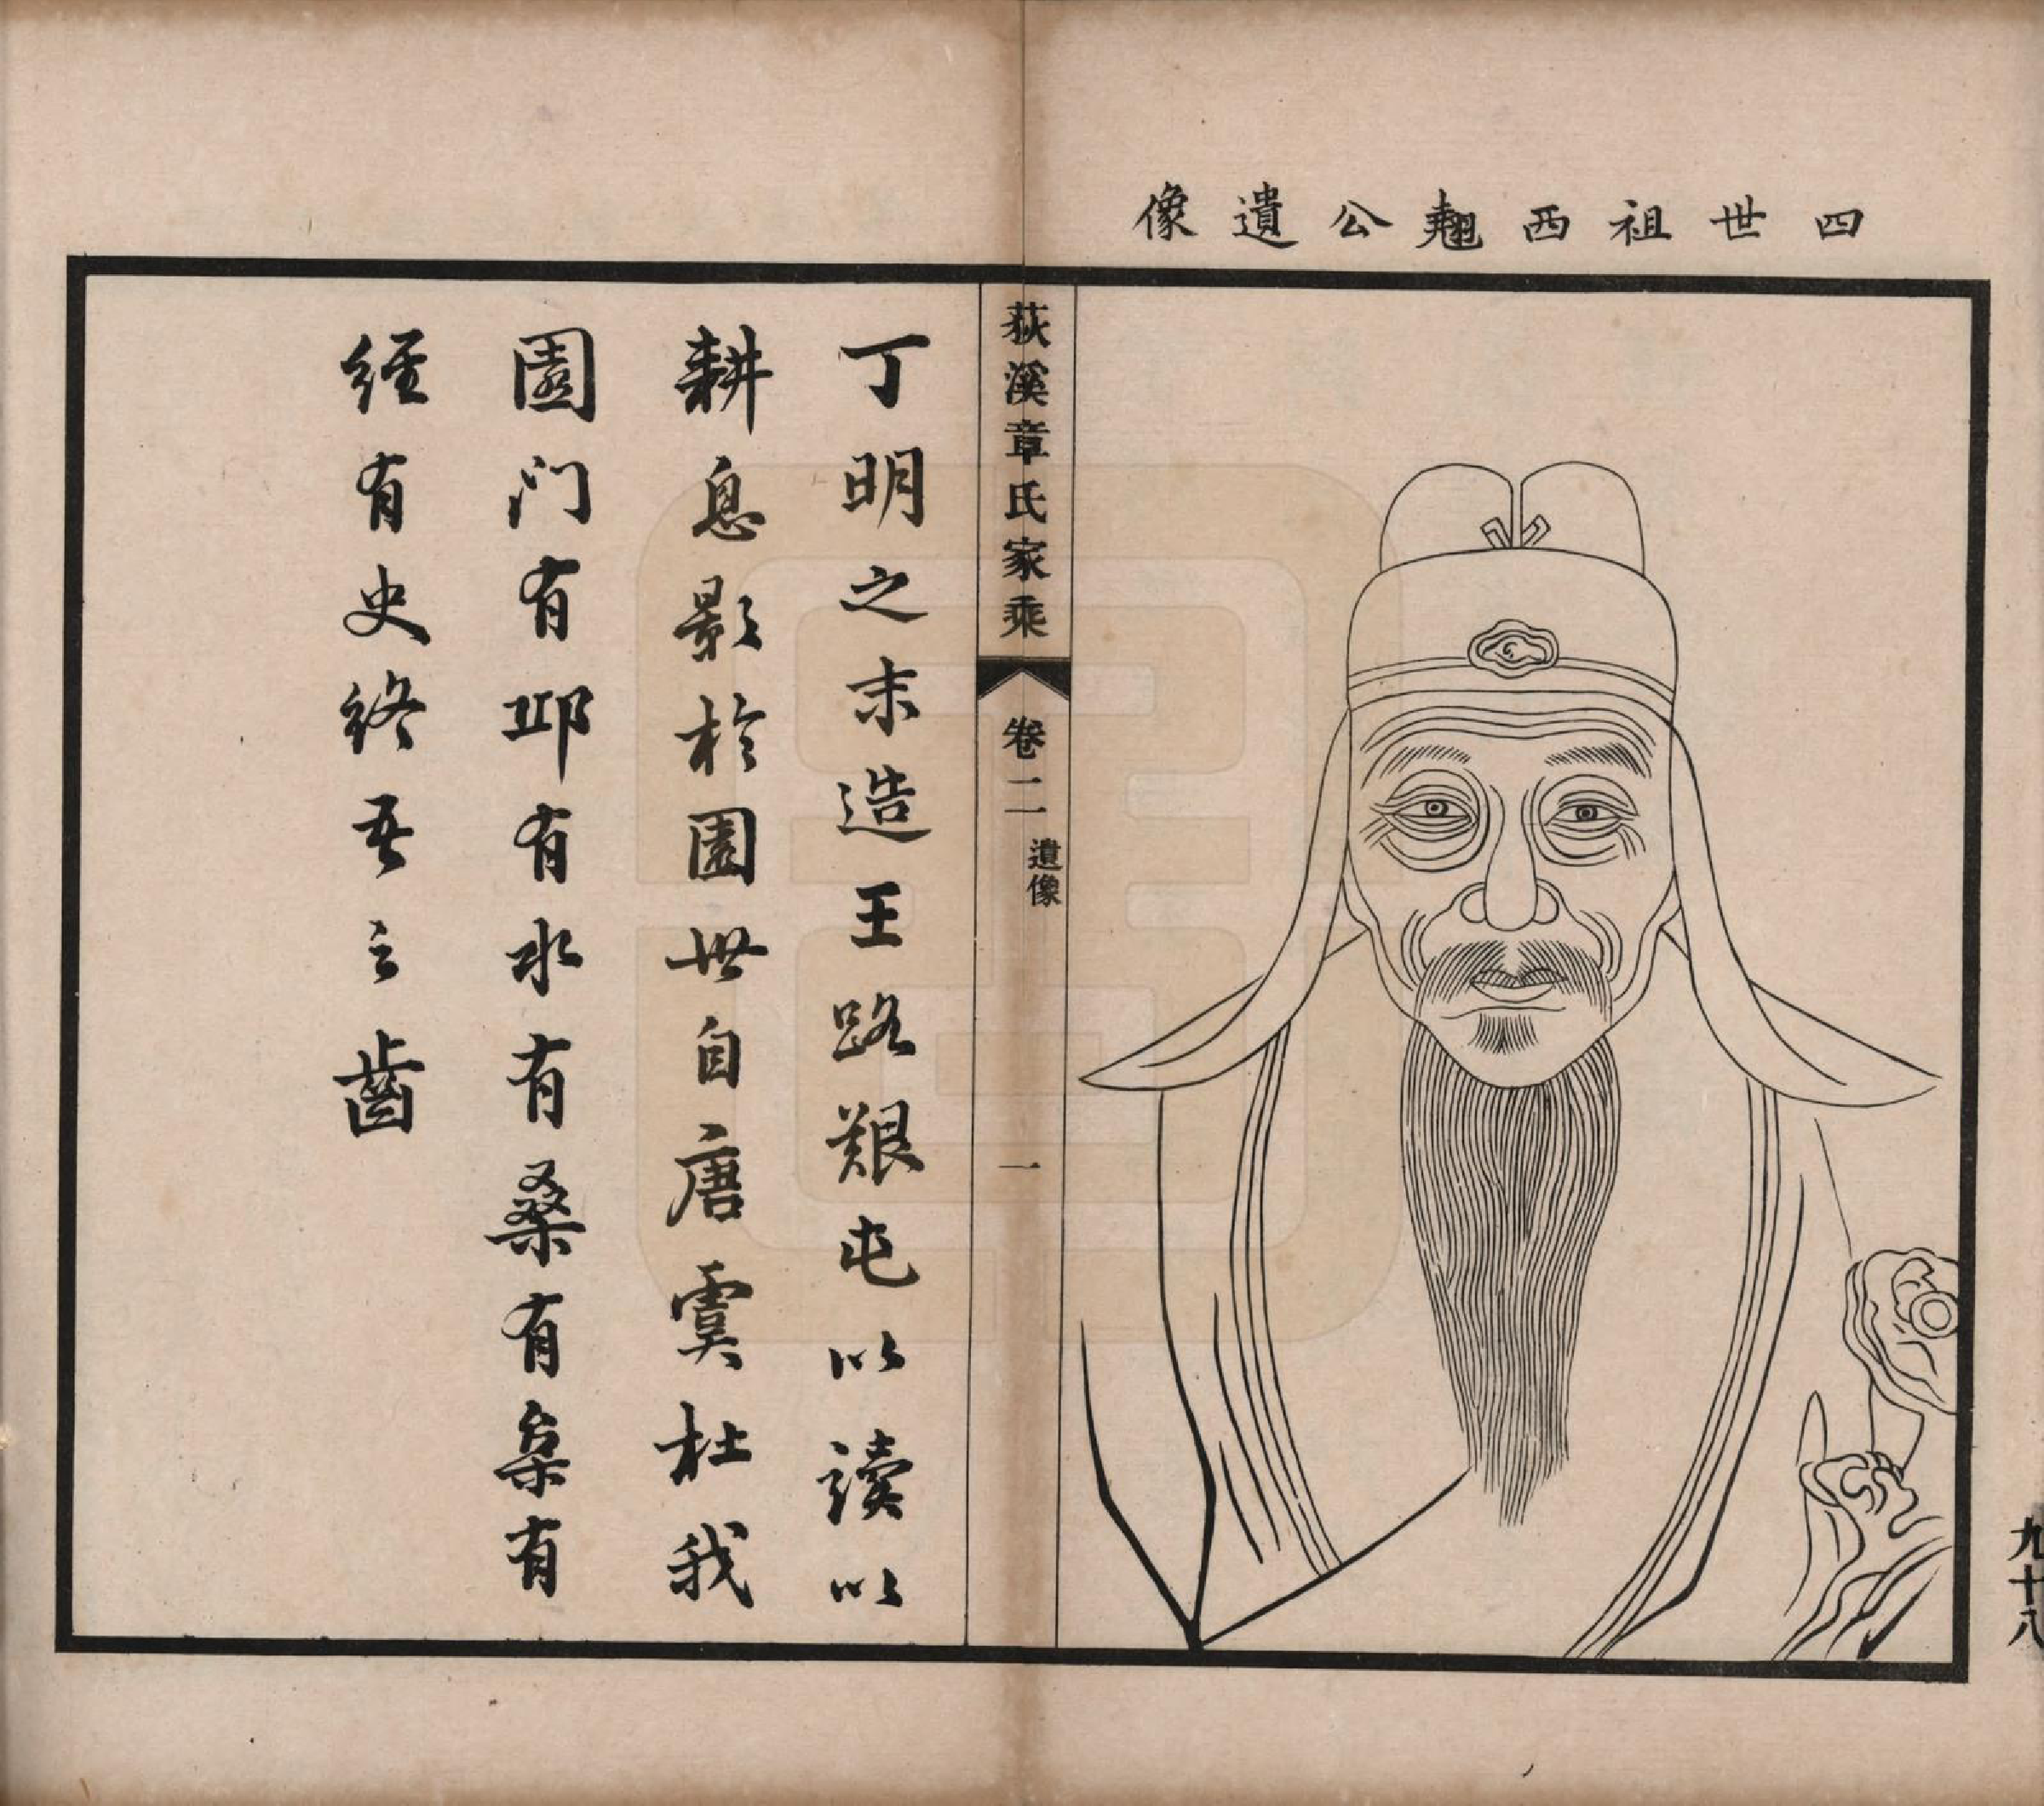 四世祖西翹公遺像
荻溪章氏家乘
卷二
遺像
一
丁明之末造王路艱屯以讀以
耕息影於園世自唐虞杜我
園门有邱有水有桑有枲有
經有史終吾之齒
九十八